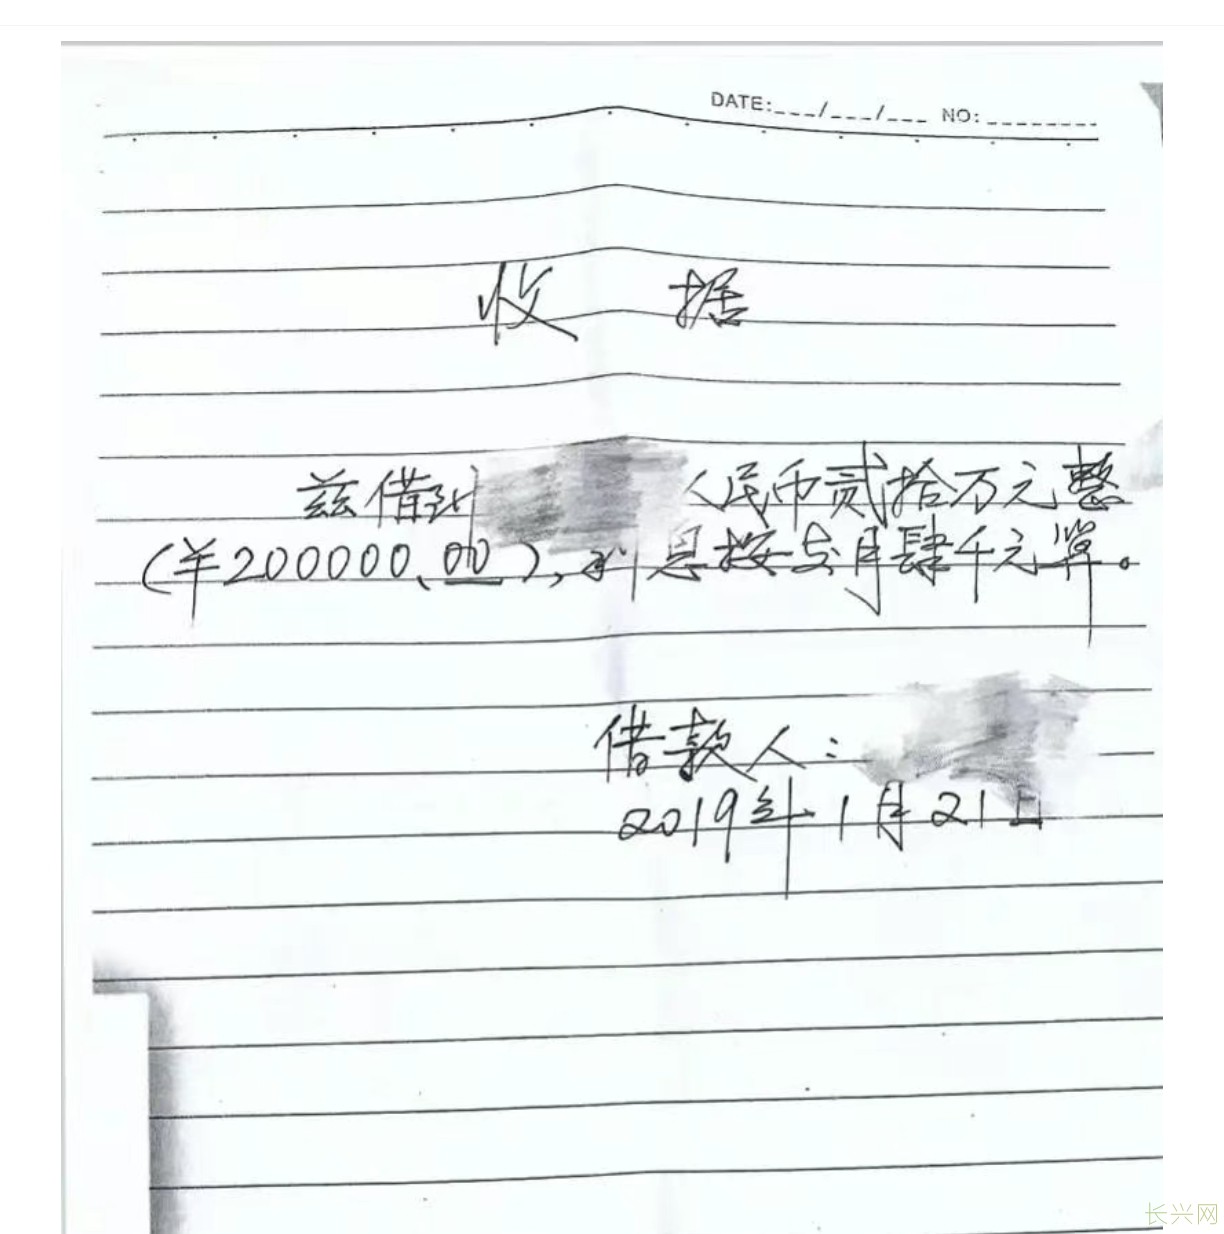 DATE:___/___/___ NO:________
收 据
兹借到 人民币贰拾万元整
(羊200000.00),利息按每月肆千元算。
借款人:
2019年1月21日
长兴网